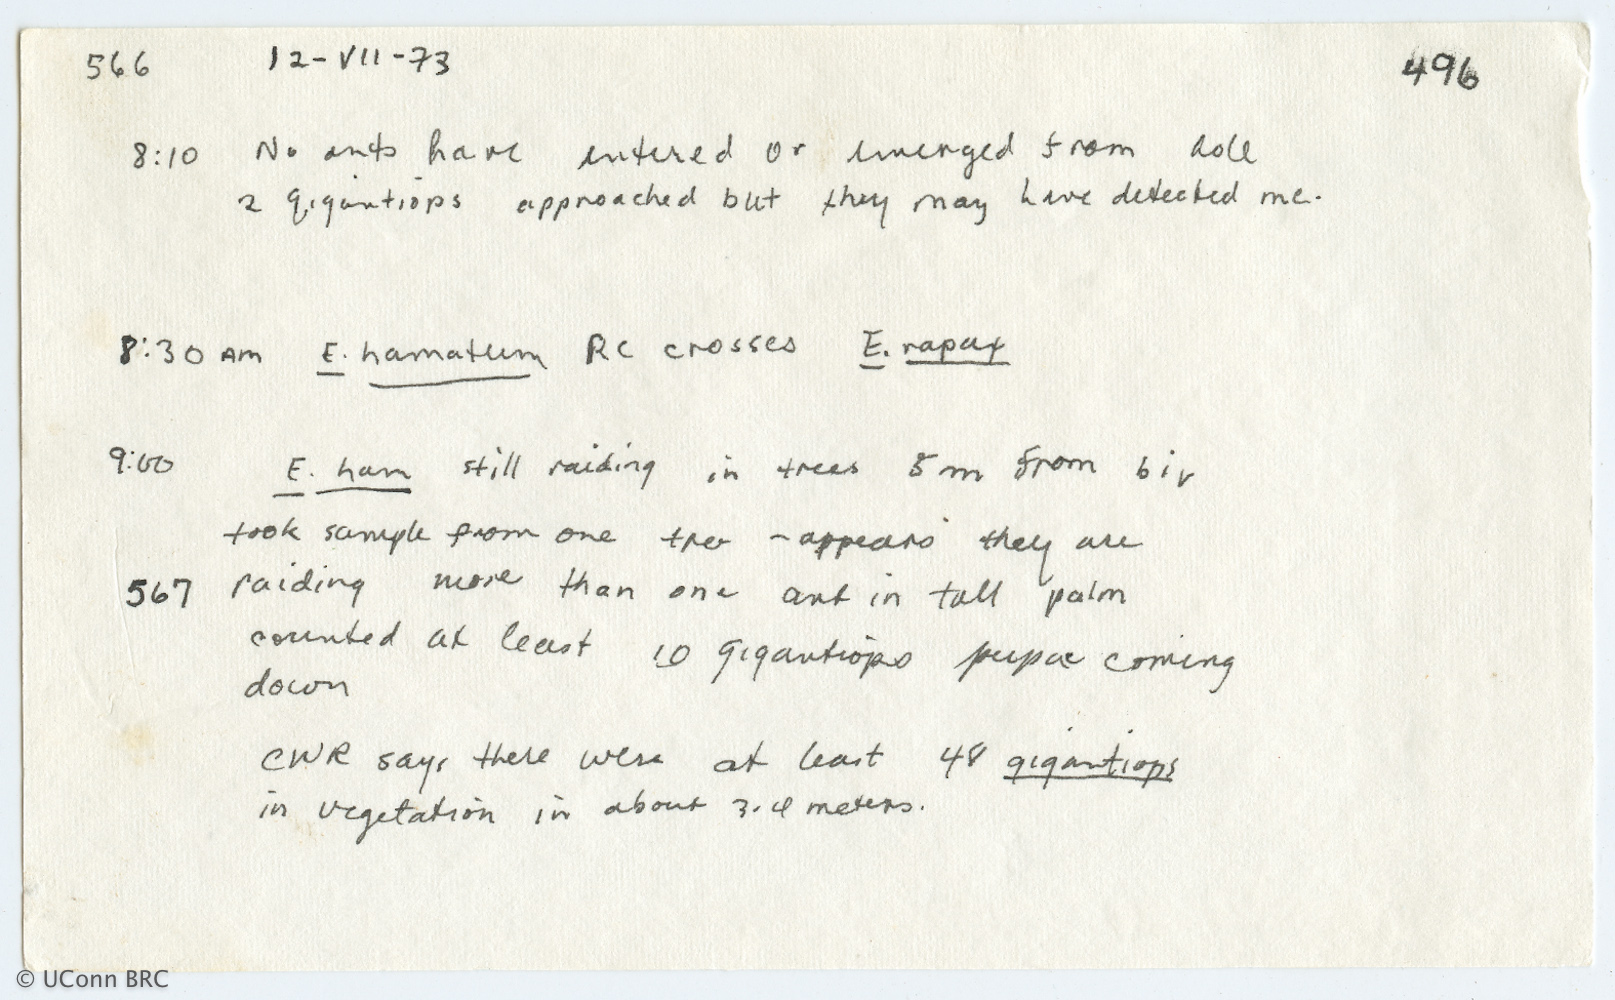 566 12-VII-73 496
8:10 No ants have entered or emerged from hole
2 gigantiops approached but they may have detected me.
8:30 AM E. hamatum RC crosses E. rapax
9:00 E. ham still raiding in trees 5m from biv
took sample from one tree - appears they are
567 raiding more than one ant in tall palm
counted at least 10 gigantiops pupae coming
down
CWR says there were at least 48 gigantiops
in vegetation in about 3-4 meters.
© UConn BRC